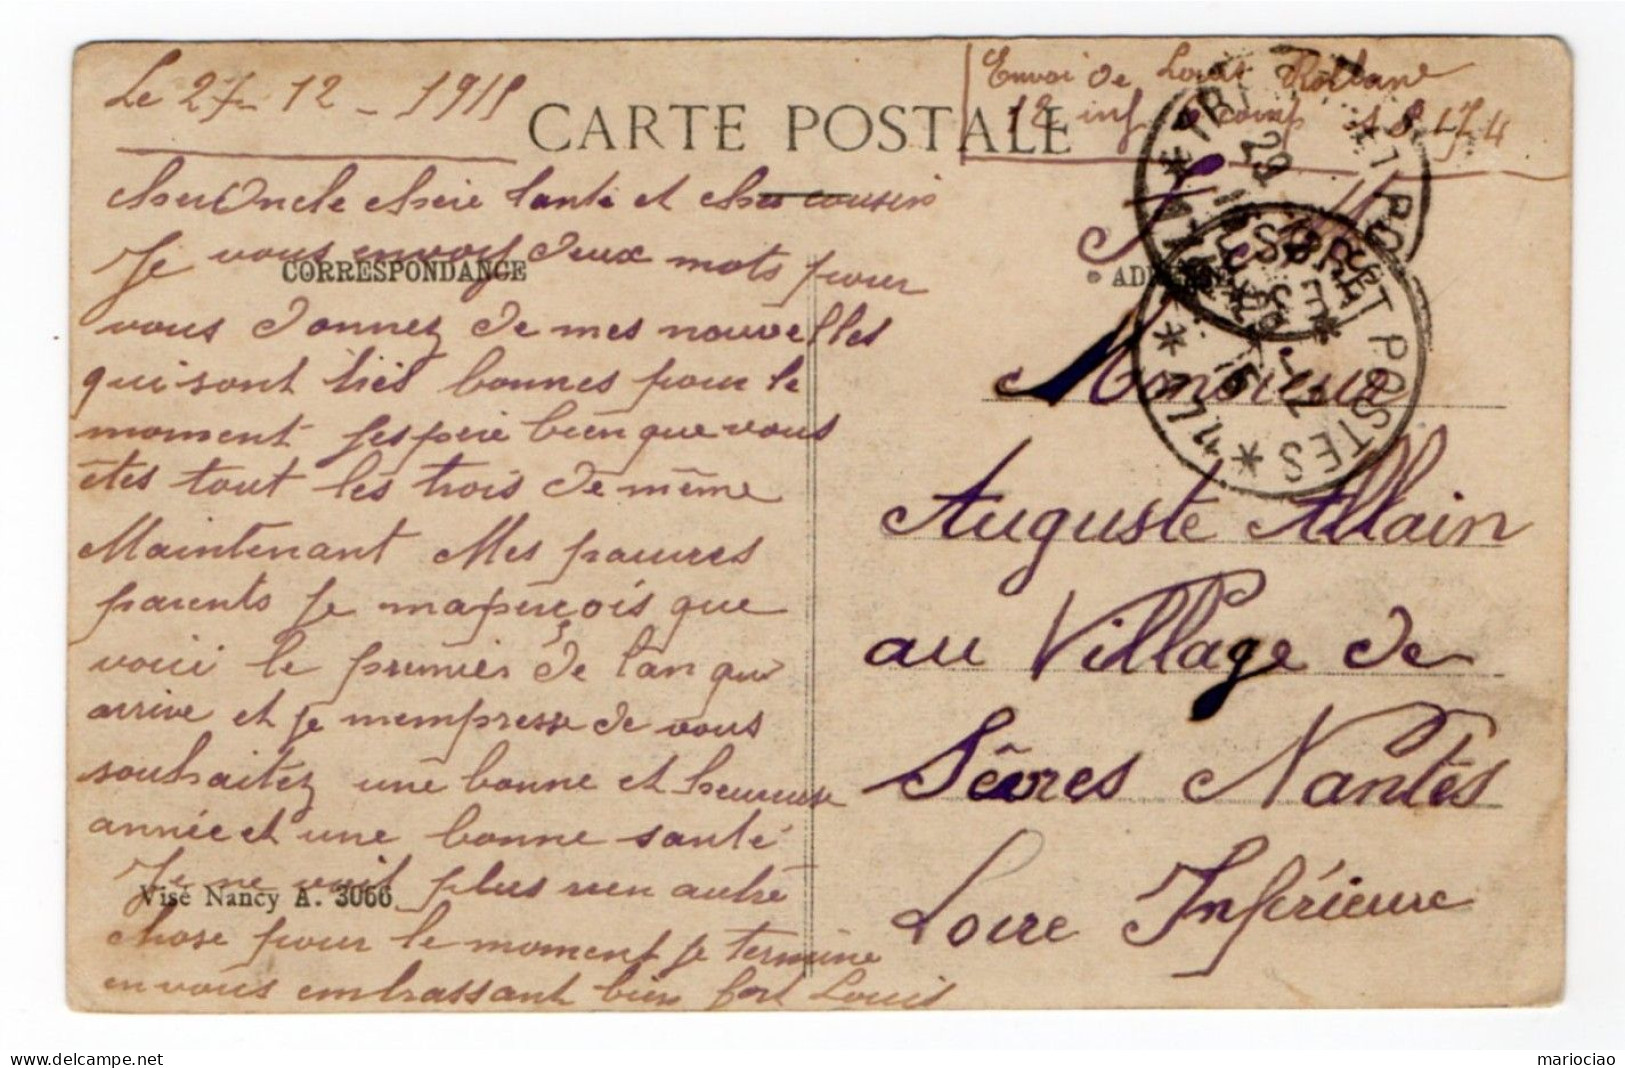 Le 27-12-1915
CARTE POSTALE
Envoi de Louis
inf comp S 174
cher Oncle chère tante et cher cousin
Je vous envoy deux mots pour
CORRESPONDANCE
vous donnez de mes nouvelles
qui sont très bonnes pour le
moment jespère bien que vous
êtes tout les trois de même
Maintenant Mes pauvres
parents je maperçois que
voici le premier de l'an qui
arrive et je mempresse de vous
souhaitez une bonne et heureuse
année et une bonne santé
Je ne voit plus rien autre
Visé Nancy A. 3066
chose pour le moment je termine
en vous embrassant bien fort Louis
TRESOR ET POSTES
* 174 *
29 -12 15
F. M.
Monsieur
Auguste Allain
au Village de
Sêvres Nantes
Loire Inférieure
mariociao